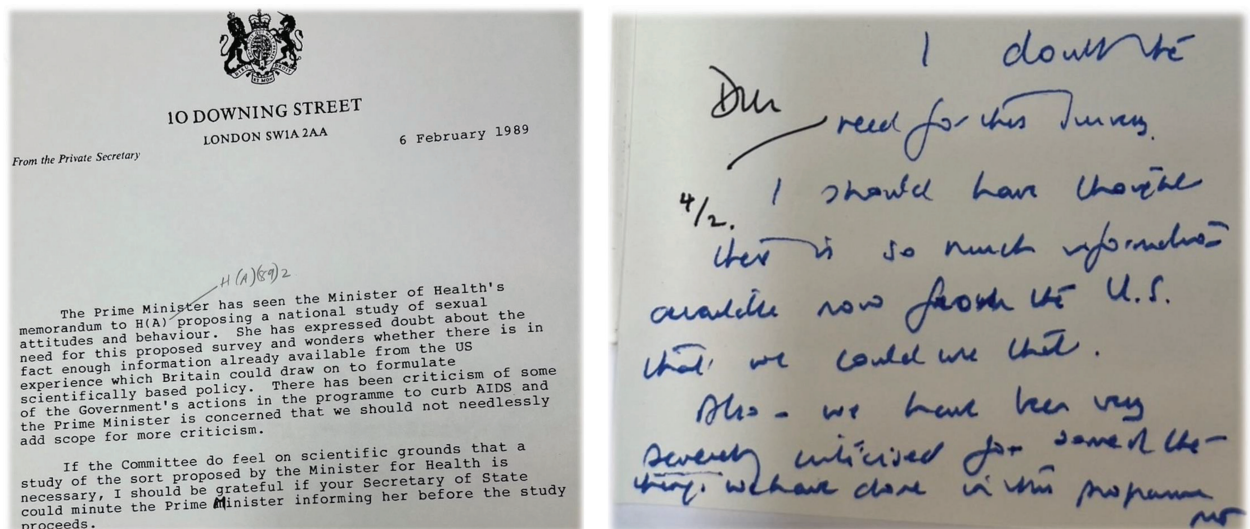 10 DOWNING STREET
LONDON SW1A 2AA
From the Private Secretary
6 February 1989
H(A)(89)2
The Prime Minister has seen the Minister of Health's
memorandum to H(A) proposing a national study of sexual
attitudes and behaviour. She has expressed doubt about the
need for this proposed survey and wonders whether there is in
fact enough information already available from the US
experience which Britain could draw on to formulate
scientifically based policy. There has been criticism of some
of the Government's actions in the programme to curb AIDS and
the Prime Minister is concerned that we should not needlessly
add scope for more criticism.
If the Committee do feel on scientific grounds that a
study of the sort proposed by the Minister for Health is
necessary, I should be grateful if your Secretary of State
could minute the Prime Minister informing her before the study
proceeds.
I doubt the
need for this survey.
4/2.
I should have thought
there is so much information
available now from the U.S.
that we could use that.
Also - we have been very
severely criticised for some of the
things we have done in this programme
mt